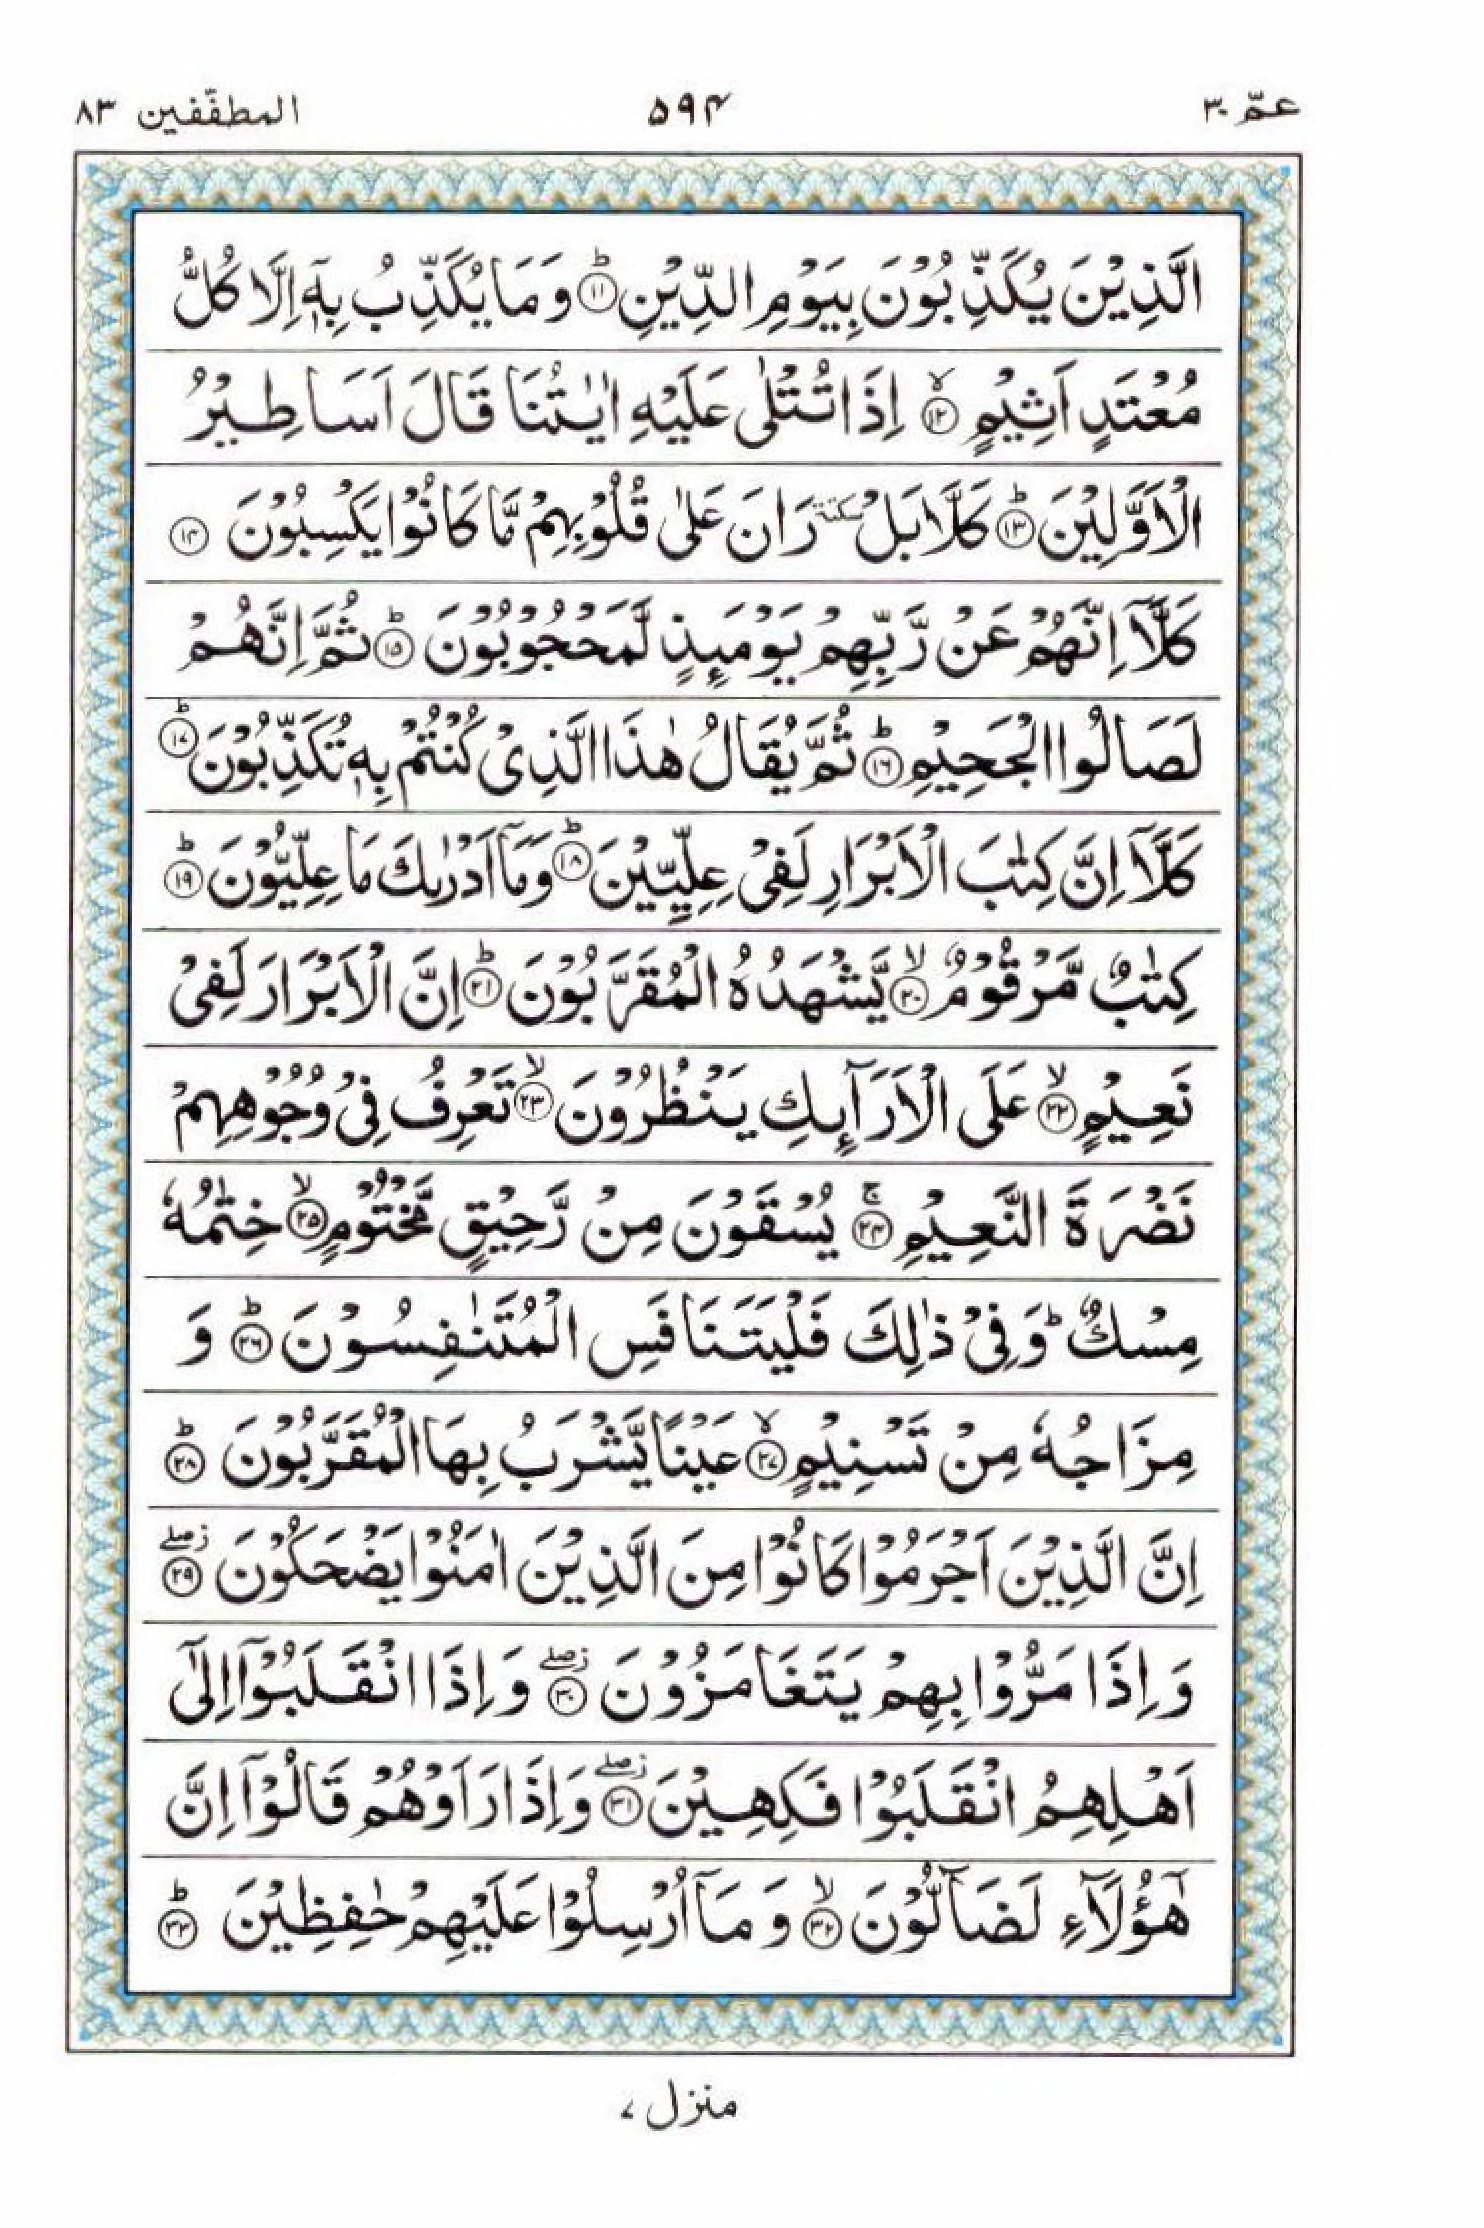 عمّ ۳۰
۵۹۴
المطفّفين ۸۳
الَّذِيْنَ يُكَذِّبُوْنَ بِيَوْمِ الدِّيْنِ ؕ‏﴿۱۱﴾ وَمَا يُكَذِّبُ بِهٖۤ اِلَّا كُلُّ
مُعْتَدٍ اَثِيْمٍ ۙ‏﴿۱۲﴾ اِذَا تُتْلٰى عَلَيْهِ اٰيٰتُنَا قَالَ اَسَاطِيْرُ
الْاَوَّلِيْنَ ؕ‏﴿۱۳﴾ كَلَّا بَلْ سكتة رَانَ عَلٰى قُلُوْبِهِمْ مَّا كَانُوْا يَكْسِبُوْنَ ﴿۱۴﴾
كَلَّاۤ اِنَّهُمْ عَنْ رَّبِّهِمْ يَوْمَىِٕذٍ لَّمَحْجُوْبُوْنَ ؕ‏﴿۱۵﴾ ثُمَّ اِنَّهُمْ
لَصَالُوا الْجَحِيْمِ ؕ‏﴿۱۶﴾ ثُمَّ يُقَالُ هٰذَا الَّذِىْ كُنْتُمْ بِهٖ تُكَذِّبُوْنَ ؕ‏﴿۱۷﴾
كَلَّاۤ اِنَّ كِتٰبَ الْاَبْرَارِ لَفِىْ عِلِّيِّيْنَ ؕ‏﴿۱۸﴾ وَمَاۤ اَدْرٰىكَ مَا عِلِّيُّوْنَ ؕ‏﴿۱۹﴾
كِتٰبٌ مَّرْقُوْمٌ ۙ‏﴿۲۰﴾ يَّشْهَدُهُ الْمُقَرَّبُوْنَ ؕ‏﴿۲۱﴾ اِنَّ الْاَبْرَارَ لَفِىْ
نَعِيْمٍ ۙ‏﴿۲۲﴾ عَلَى الْاَرَآىِٕكِ يَنْظُرُوْنَ ۙ‏﴿۲۳﴾ تَعْرِفُ فِىْ وُجُوْهِهِمْ
نَضْرَةَ النَّعِيْمِ ۚ‏﴿۲۴﴾ يُسْقَوْنَ مِنْ رَّحِيْقٍ مَّخْتُوْمٍ ۙ‏﴿۲۵﴾ خِتٰمُهٗ
مِسْكٌ ؕ وَفِىْ ذٰلِكَ فَلْيَتَنَافَسِ الْمُتَنٰفِسُوْنَ ؕ‏﴿۲۶﴾ وَ
مِزَاجُهٗ مِنْ تَسْنِيْمٍ ۙ‏﴿۲۷﴾ عَيْنًا يَّشْرَبُ بِهَا الْمُقَرَّبُوْنَ ؕ‏﴿۲۸﴾
اِنَّ الَّذِيْنَ اَجْرَمُوْا كَانُوْا مِنَ الَّذِيْنَ اٰمَنُوْا يَضْحَكُوْنَ ز ۖ‏﴿۲۹﴾
وَاِذَا مَرُّوْا بِهِمْ يَتَغَامَزُوْنَ ز ۖ‏﴿۳۰﴾ وَاِذَا انْقَلَبُوْۤا اِلٰٓى
اَهْلِهِمُ انْقَلَبُوْا فَكِهِيْنَ ز ۖ‏﴿۳۱﴾ وَاِذَا رَاَوْهُمْ قَالُوْۤا اِنَّ
هٰٓؤُلَاۤءِ لَضَآلُّوْنَ ۙ‏﴿۳۲﴾ وَمَاۤ اُرْسِلُوْا عَلَيْهِمْ حٰفِظِيْنَ ؕ‏﴿۳۳﴾
منزل ۷